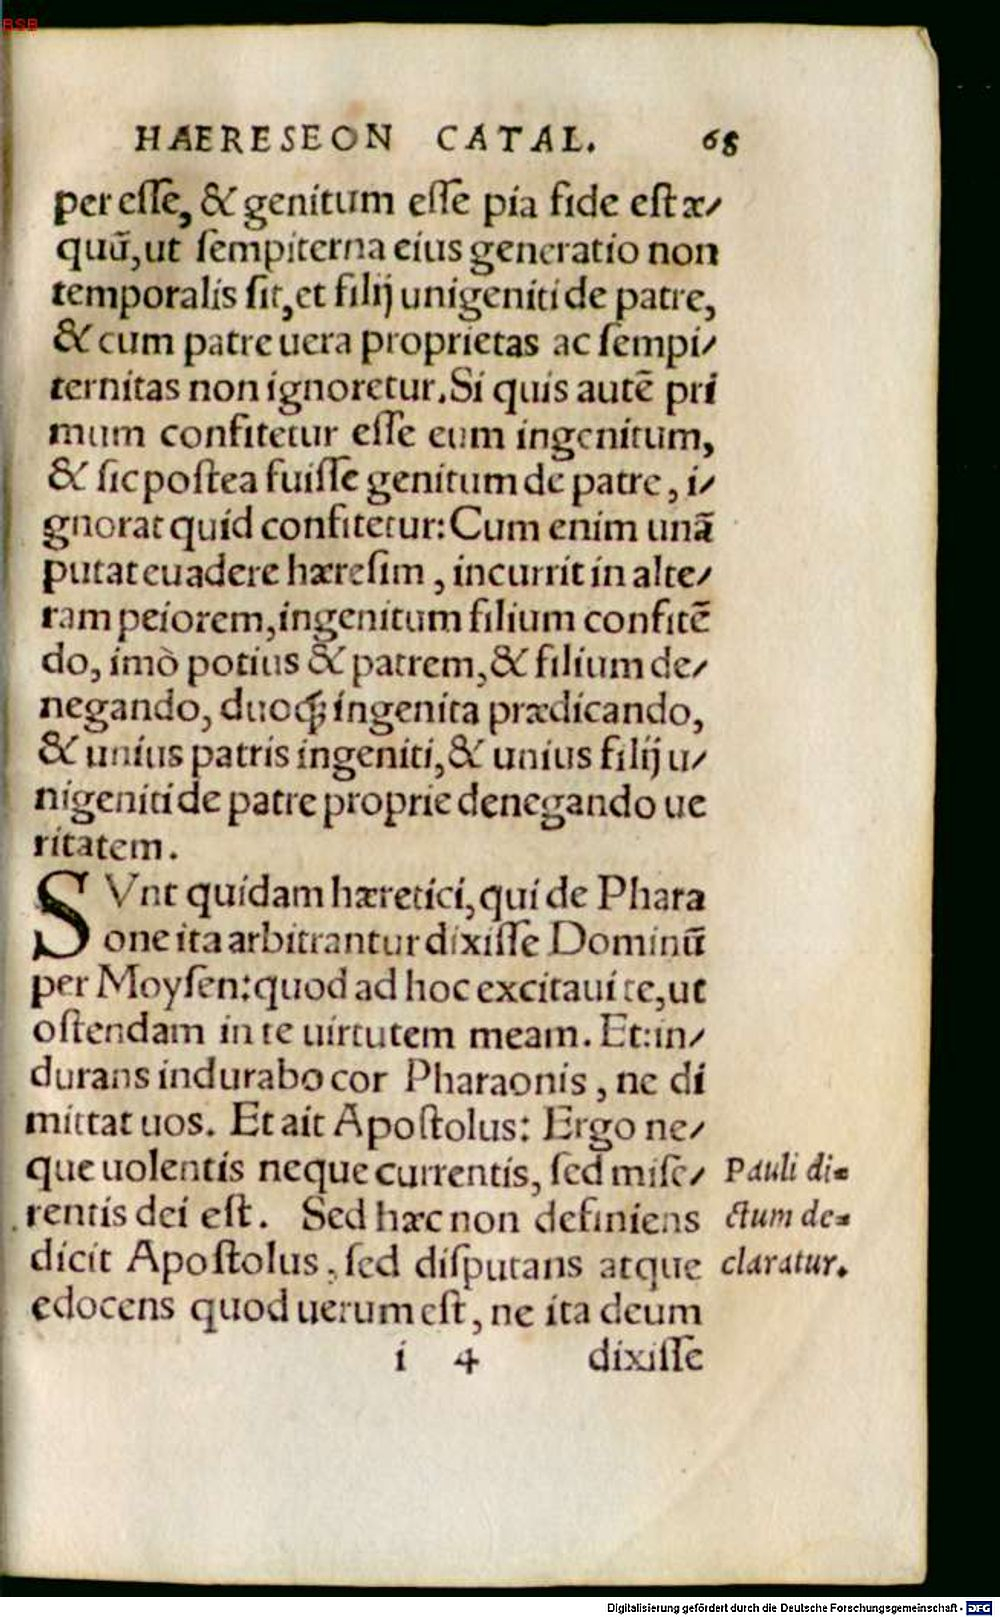 BSB
HAERESEON CATAL. 68
per eſſe, & genitum eſſe pia fide eſt æ/
quũ, ut ſempiterna eius generatio non
temporalis ſit, et filij unigeniti de patre,
& cum patre uera proprietas ac ſempi/
ternitas non ignoretur. Si quis autẽ pri
mum confitetur eſſe eum ingenitum,
& ſic poſtea fuiſſe genitum de patre, i/
gnorat quid confitetur: Cum enim unã
putat euadere hæreſim, incurrit in alte/
ram peiorem, ingenitum filium confitẽ
do, imò potius & patrem, & filium de/
negando, duoq́; ingenita prædicando,
& unius patris ingeniti, & unius filij u/
nigeniti de patre proprie denegando ue
ritatem.
SVnt quidam hæretici, qui de Phara
one ita arbitrantur dixiſſe Dominũ
per Moyſen: quod ad hoc excitaui te, ut
oſtendam in te uirtutem meam. Et: in/
durans indurabo cor Pharaonis, ne di
mittat uos. Et ait Apoſtolus: Ergo ne/
que uolentis neque currentis, ſed miſe/ Pauli di=
rentis dei eſt. Sed hæc non definiens ctum de=
dicit Apoſtolus, ſed diſputans atque claratur.
edocens quod uerum eſt, ne ita deum
i 4 dixiſſe
Digitalisierung gefördert durch die Deutsche Forschungsgemeinschaft - DFG